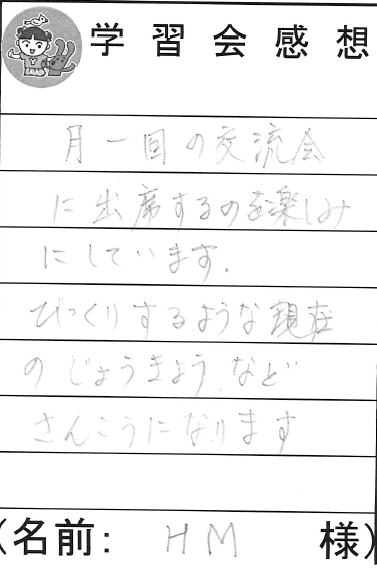 学習会感想
月一回の交流会
に出席するのを楽しみ
にしています.
びっくりするような現在
のじょうきょう、など
さんこうになります
(名前: HM 様)